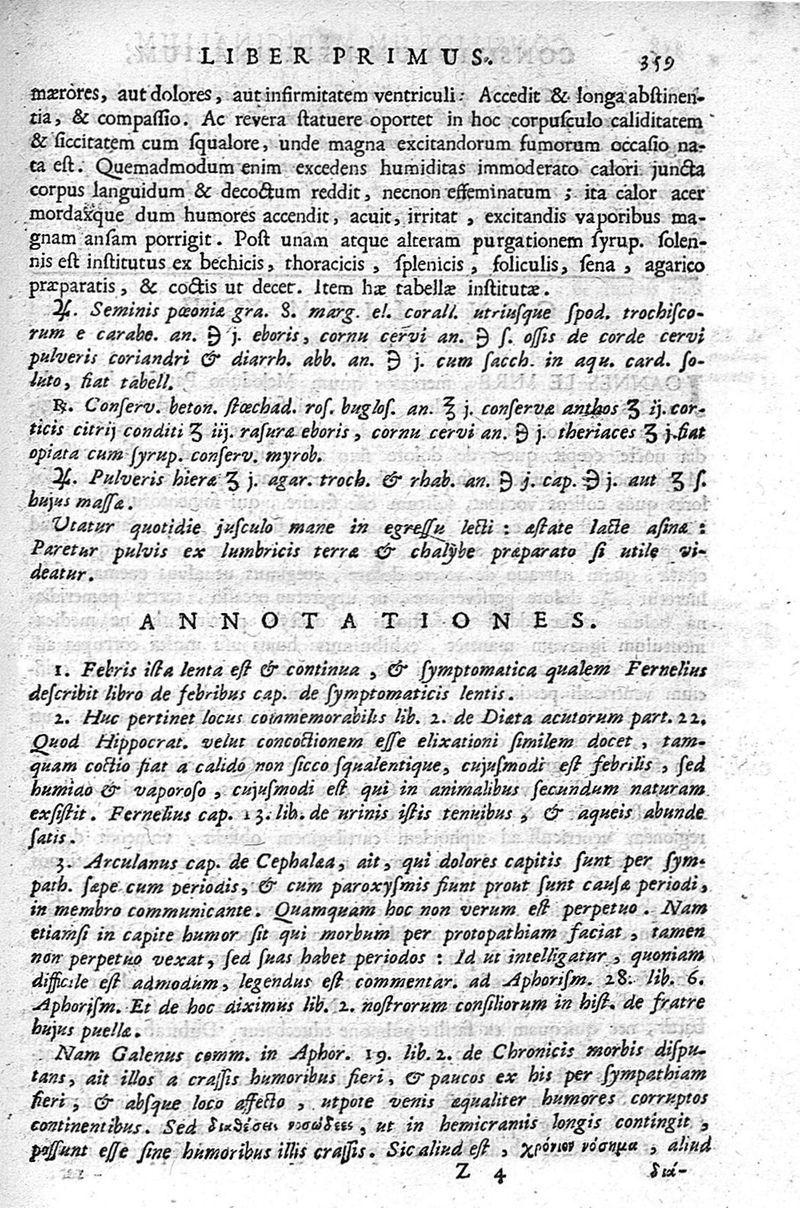 LIBER PRIMUS. 359
mærores, aut dolores, aut infirmitatem ventriculi: Accedit & longa abſtinen-
tia, & compaſſio. Ac revera ſtatuere oportet in hoc corpuſculo caliditatem
& ſiccitatem cum ſqualore, unde magna excitandorum fumorum occaſio na-
ta eſt. Quemadmodum enim excedens humiditas immoderato calori juncta
corpus languidum & decoctum reddit, necnon effeminatum; ita calor acer
mordaxque dum humores accendit, acuit, irritat, excitandis vaporibus ma-
gnam anſam porrigit. Poſt unam atque alteram purgationem ſyrup. ſolen-
nis eſt inſtitutus ex bechicis, thoracicis, ſplenicis, foliculis, ſena, agarico
præparatis, & coctis ut decet. Item hæ tabellæ inſtitutæ.
♃. Seminis pæoniæ gra. 8. marg. el. corall. utriuſque ſpod. trochiſco-
rum e carabe. an. ℈ j. eboris, cornu cervi an. ℈ ſ. oſſis de corde cervi
pulveris coriandri & diarrh. abb. an. ℈ j. cum ſacch. in aqu. card. ſo-
luto, fiat tabell.
℞. Conſerv. beton. ſtœchad. roſ. bugloſ. an. ʒ j. conſervæ anthos ʒ ij. cor-
ticis citrij conditi ʒ iij. raſuræ eboris, cornu cervi an. ℈ j. theriaces ʒ j. fiat
opiata cum ſyrup. conſerv. myrob.
♃. Pulveris hieræ ʒ j. agar. troch. & rhab. an. ℈ j. cap. ℈ j. aut ʒ ſ.
hujus maſſæ.
Utatur quotidie juſculo mane in egreſſu lecti: æſtate lacte aſinæ:
Paretur pulvis ex lumbricis terræ & chalybe præparato ſi utile vi-
deatur.
ANNOTATIONES.
1. Febris iſta lenta eſt & continua, & ſymptomatica qualem Fernelius
deſcribit libro de febribus cap. de ſymptomaticis lentis.
2. Huc pertinet locus commemorabilis lib. 2. de Diæta acutorum part. 22.
Quod Hippocrat. velut concoctionem eſſe elixationi ſimilem docet, tam-
quam coctio fiat a calido non ſicco ſqualentique, cujuſmodi eſt febrilis, ſed
humido & vaporoſo, cujuſmodi eſt qui in animalibus ſecundum naturam
exſiſtit. Fernelius cap. 13. lib. de urinis iſtis tenuibus, & aqueis abunde
ſatis.
3. Arculanus cap. de Cephalæa, ait, qui dolores capitis ſunt per ſym-
path. ſæpe cum periodis, & cum paroxyſmis fiunt prout ſunt cauſæ periodi,
in membro communicante. Quamquam hoc non verum eſt perpetuo. Nam
etiamſi in capite humor ſit qui morbum per protopathiam faciat, tamen
non perpetuo vexat, ſed ſuas habet periodos: Id ut intelligatur, quoniam
difficile eſt admodum, legendus eſt commentar. ad Aphoriſm. 28. lib. 6.
Aphoriſm. Et de hoc diximus lib. 2. noſtrorum conſiliorum in hiſt. de fratre
hujus puellæ.
Nam Galenus comm. in Aphor. 19. lib. 2. de Chronicis morbis diſpu-
tans, ait illos a craſſis humoribus fieri, & paucos ex his per ſympathiam
fieri; & abſque loco affecto, utpote venis æqualiter humores corruptos
continentibus. Sed διαθέσεις νοσώδεις, ut in hemicraniis longis contingit,
poſſunt eſſe ſine humoribus illis craſſis. Sic aliud eſt, χρόνιον νόσημα, aliud
Z 4 διά-